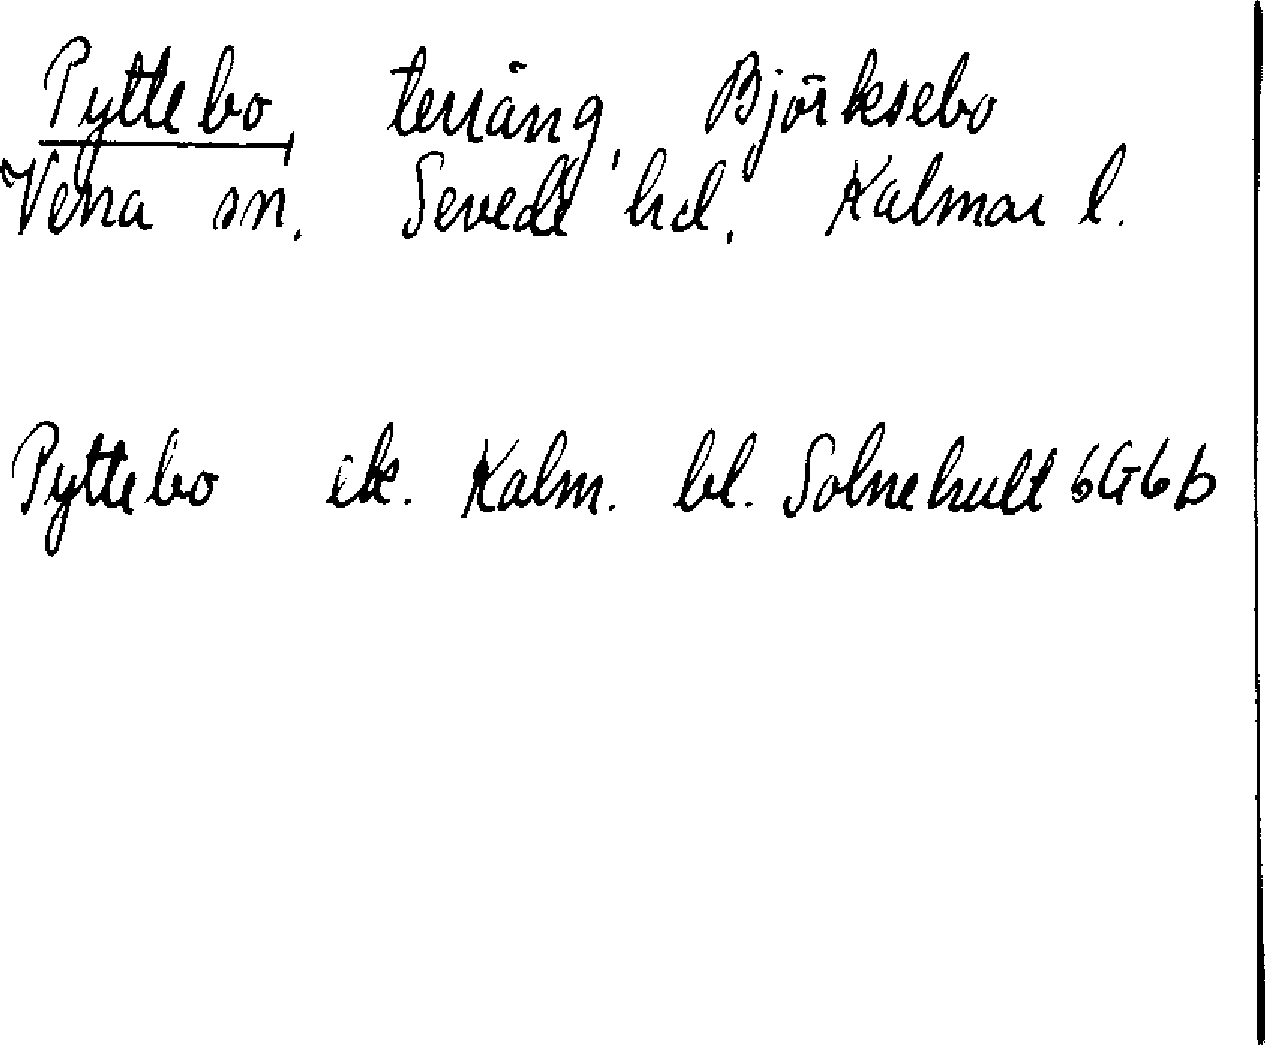 Pyttebo, terräng, Björksebo
Vena sn. Sevede hd. Kalmar l.
Pyttebo ek. Kalm. bl. Solnehult 6G6b